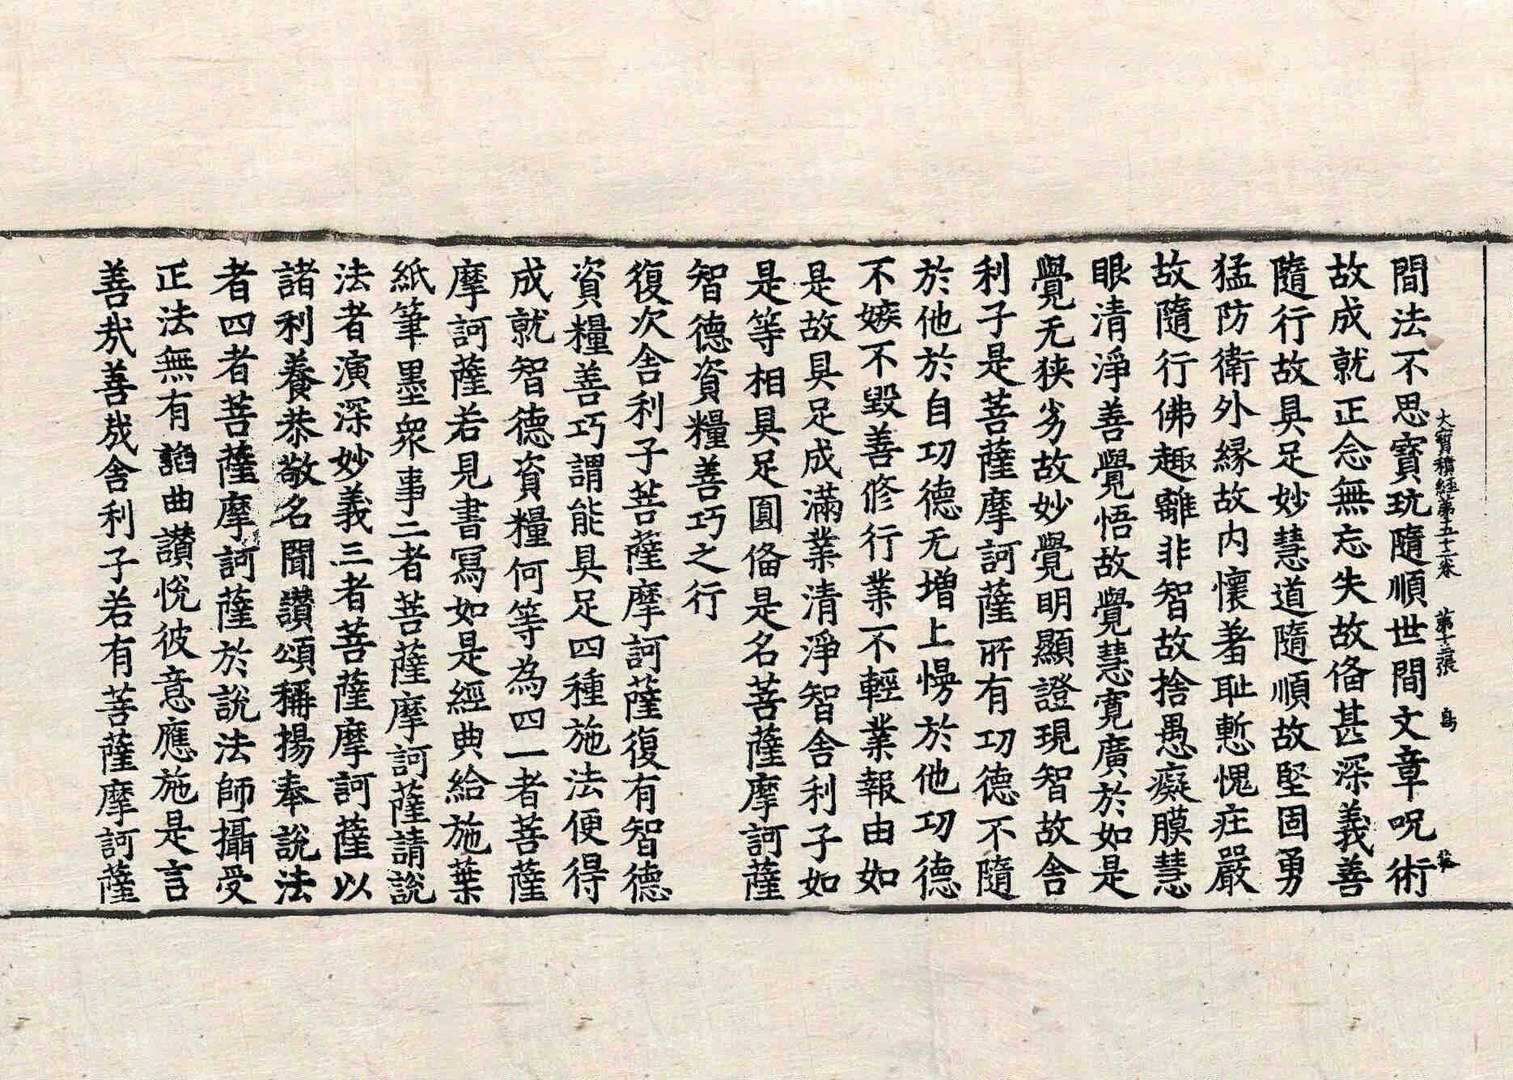 大寶積經第五十三卷 第十三張 鳥
間法不思寶玩隨順世間文章呪術
故成就正念無忘失故俻甚深義善
隨行故具足妙慧道隨順故堅固勇
猛防衛外緣故内懷著耻慙愧疰嚴
故隨行佛趣離非智故捨愚癡膜慧
眼清淨善覺悟故覺慧寬廣於如是
覺无狹劣故妙覺明顯證現智故舎
利子是菩薩摩訶薩所有功德不隨
於他於自功德无增上慢於他功德
不嫉不毀善修行業不輕業報由如
是故具足成滿業清淨智舎利子如
是等相具足圓俻是名菩薩摩訶薩
智德資糧善巧之行
復次舎利子菩薩摩訶薩復有智德
資糧善巧謂能具足四種施法便得
成就智德資糧何等為四一者菩薩
摩訶薩若見書寫如是經典給施葉
紙筆墨衆事二者菩薩摩訶薩請說
法者演深妙義三者菩薩摩訶薩以
諸利養恭敬名聞讚頌稱揚奉說法
者四者菩薩摩訶薩於說法師攝受
正法無有諂曲讚悅彼意應施是言
善㢤善㢤舎利子若有菩薩摩訶薩